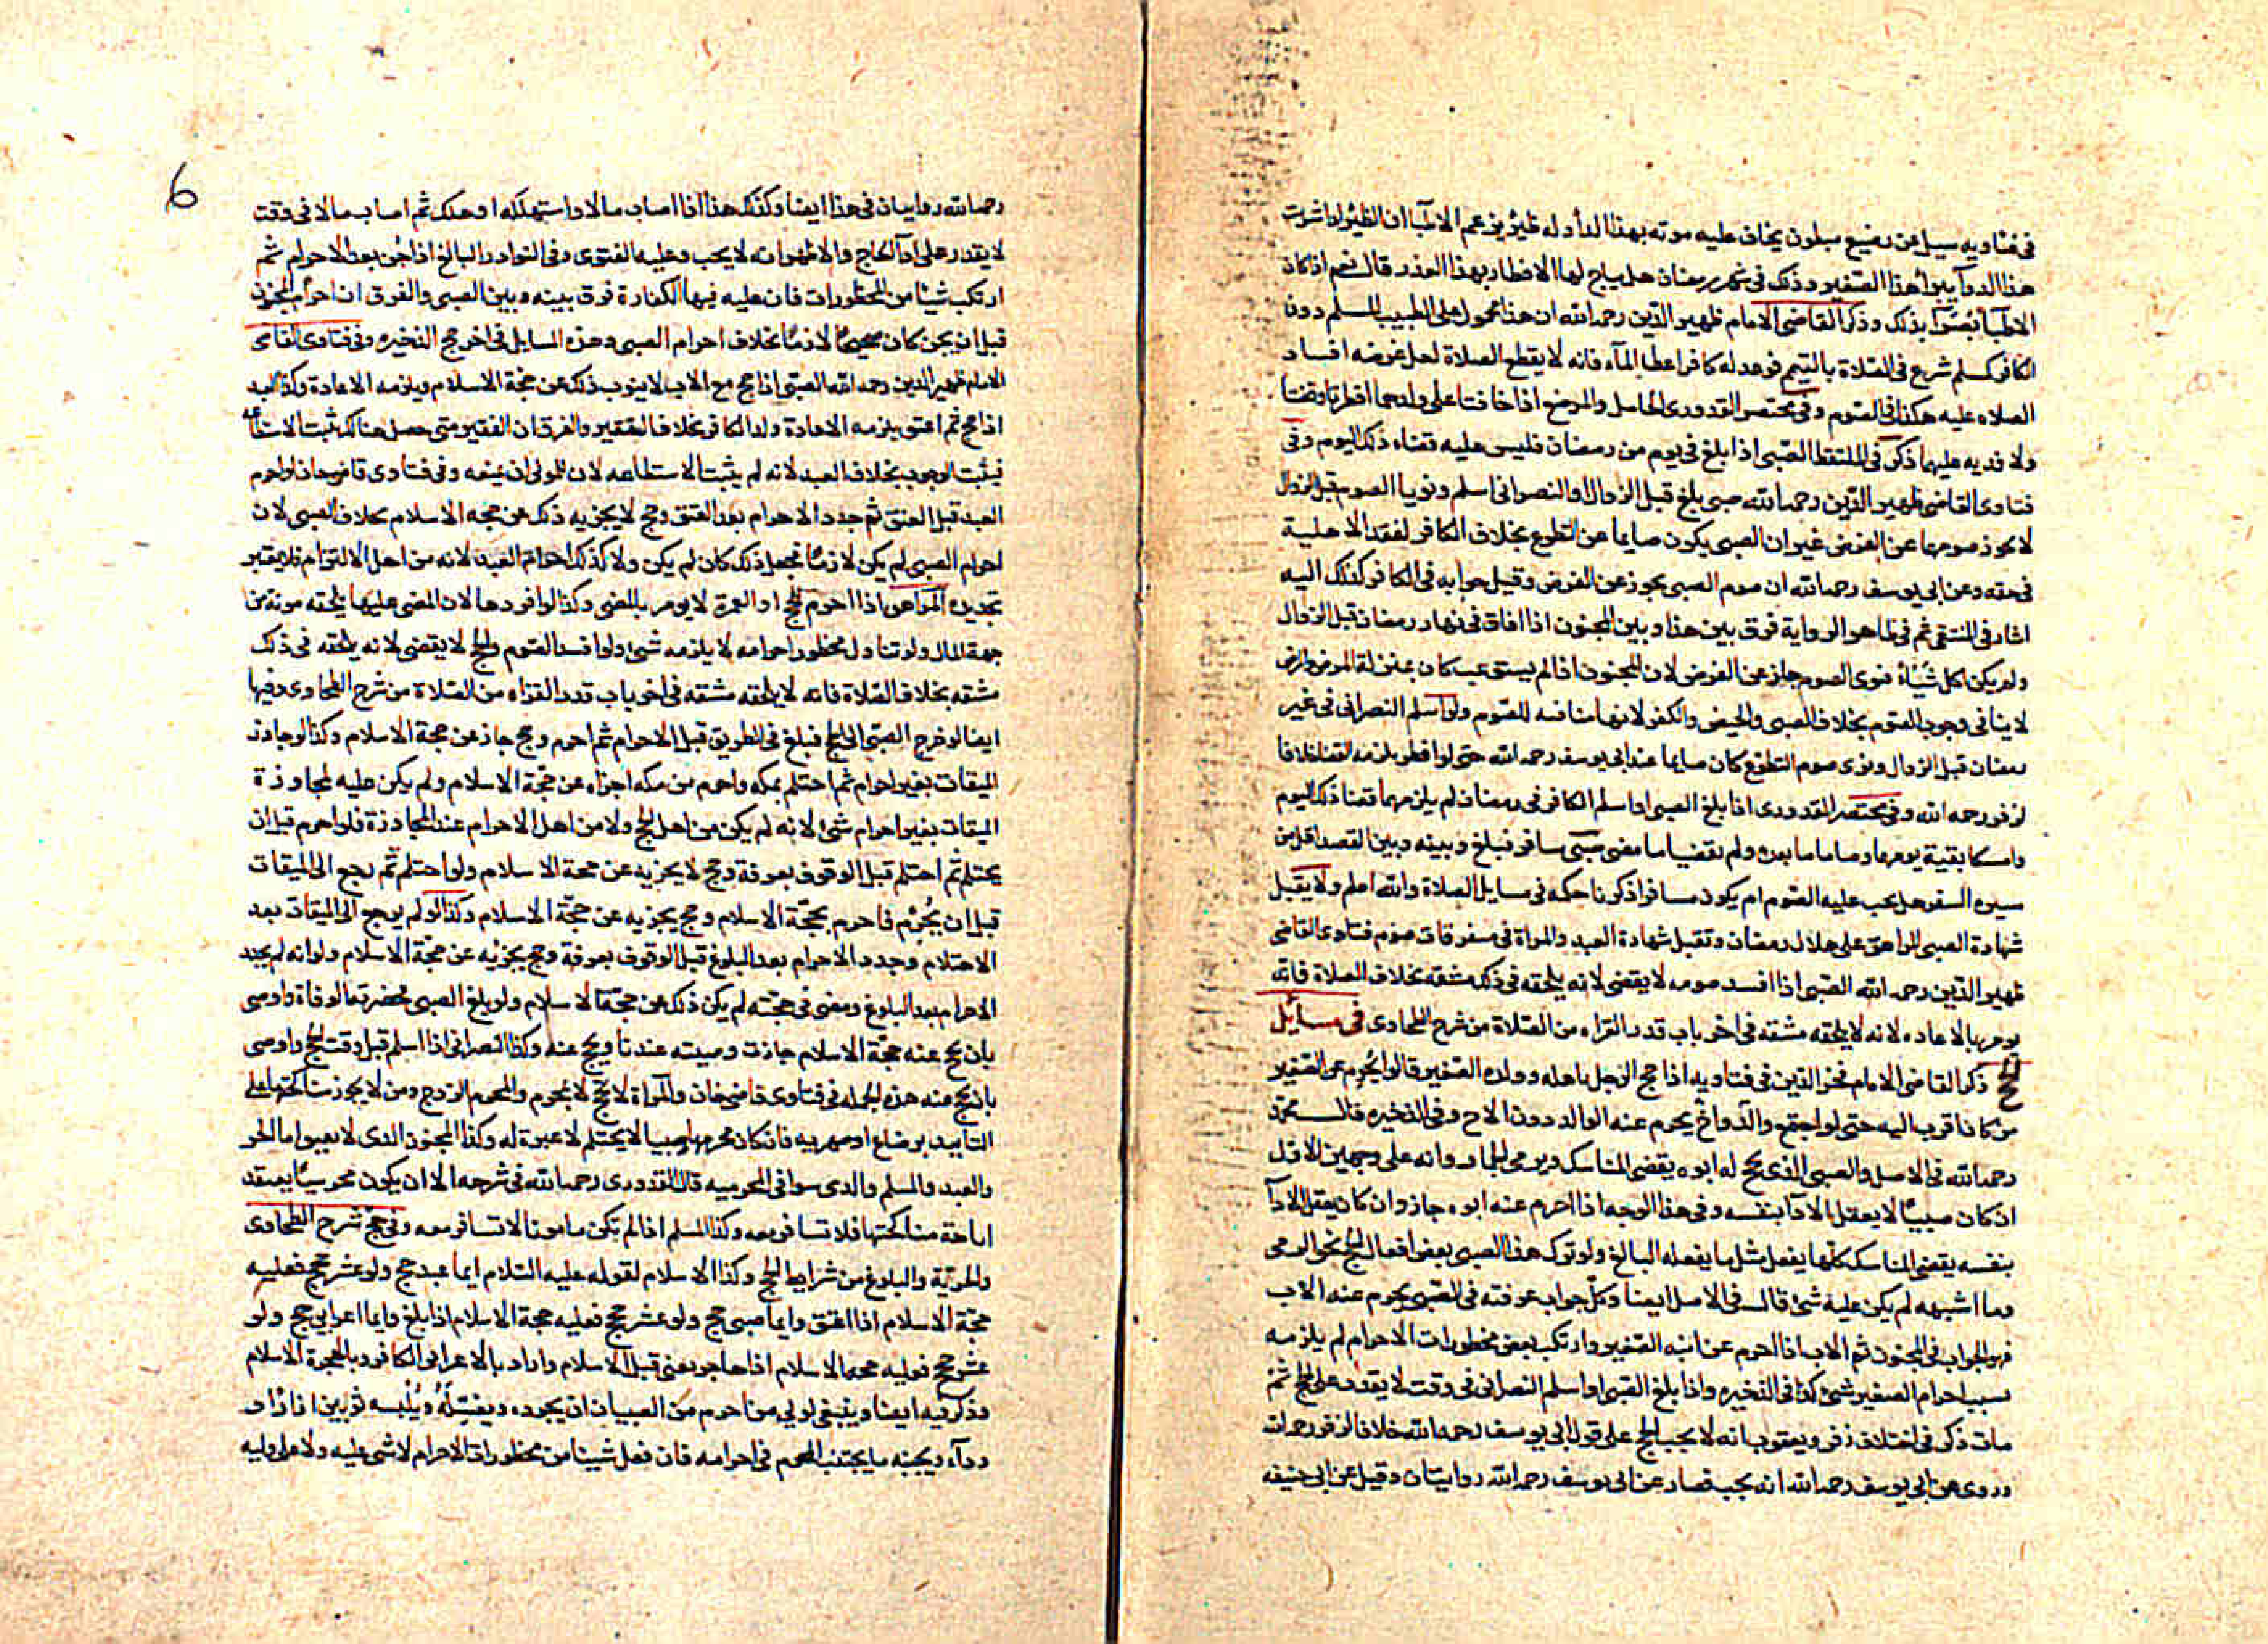 في فتاويه سيل عن رضيع مبلون يخاف عليه موته بهذا الدأ وله ظير يزعم الاطبا ان الظير اذا شربت
هذا الدوآ يبرأ هذا الصغير وذلك في شهر رمضان هل يباح لها الافطار بهذا العذر قال نعم اذا كان
الاطبآ بصرآ بذلك وذكر القاضى الامام ظهير الدين رحمه الله ان هذا محمول على الطبيب المسلم دون
الكافر كمسلم شرع في الصلاة بالتيمم فوعد له كافر اعطا المآء فانه لا يقطع الصلاة لعل غرضه افساد
الصلاه عليه هكذا في الصوم وفي مختصر القدورى الحامل والمرضع اذا خافتا على ولدهما افطرتا وقضتا
ولا فديه عليهما ذكر في الملتقط الصبى اذا بلغ في يوم من رمضان فليس عليه قضاء ذلك اليوم وفى
فتاوى القاضى ظهير الدين رحمه الله صبى بلغ قبل الزوال او النصرانى اسلم ونويا الصوم قبل الزوال
لا يجوز صومهما عن الفرض غير ان الصبى يكون صايما عن التطوع بخلاف الكافر لفقد الاهلية
في حقه وعن ابى يوسف رحمه الله ان صوم الصبى يجوز عن الفرض وقيل جوابه في الكافر كذلك اليه
اشار في المنتقى ثم في ظاهر الرواية فرق بين هذا وبين المجنون اذا افاق في نهار رمضان قبل الزوال
ولم يكن اكل شيئا فنوى الصوم جاز عن الفرض لان المجنون اذا لم يستوعب كان بمنزلة المرض والمرض
لا ينافى وجوب الصوم بخلاف الصبى والحيض والكفر لانها منافيه للصوم ولو اسلم النصرانى في غير
رمضان قبل الزوال ونوى صوم التطوع كان صايما عند ابى يوسف رحمه الله حتى لو افطر يلزمه القضا خلافا
لزفر رحمه الله وفى مختصر القدورى اذا بلغ الصبى او اسلم الكافر في رمضان لم يلزمهما قضا ذلك اليوم
وامسكا بقية يومهما وصاما ما بعده ولم يقضيا ما مضى صبى سافر فبلغ وبينه وبين القصد اقل من
سيره السفر هل يجب عليه الصوم ام يكون مسافرا ذكرنا حكمه في مسايل الصلاة والله اعلم ولا يقبل
شهادة الصبى المراهق على هلال رمضان وتقبل شهادة العبد والمراة في متفرقات صوم فتاوى القاضى
ظهير الدين رحمه الله الصبى اذا افسد صومه لا يقضى لانه يلحقه في ذلك مشقه بخلاف الصلاة فانه
يومر بالاعاده لانه لا يلحقه مشقه في اخر باب قدر القراه من الصلاة من شرح الطحاوى في مسائل
الحج ذكر القاضى الامام فخر الدين في فتاويه اذا حج الرجل باهله وولده الصغير قالوا يحرم عن الصغير
من كان اقرب اليه حتى لو اجتمع والد واخ يحرم عنه الوالد دون الاخ وفى الذخيره قال محمد
رحمه الله في الاصل والصبى الذى يحج له ابوه يقضى المناسك ويرمى الجمار وانه على وجهين الاول
اذا كان صبيا لا يعقل الادآ بنفسه وفى هذا الوجه اذا احرم عنه ابوه جاز وان كان يعقل الادآ
بنفسه يقضى المناسك كلها يفعل مثل ما يفعله البالغ ولو ترك هذا الصبى بعض افعال الحج نحو الرمى
وما اشبهه لم يكن عليه شئ قال في الاصل ايضا وكل جواب عرفته في الصبى يحرم عنه الاب
فهو الجواب في المجنون ثم الاب اذا احرم عن ابنه الصغير وارتكب بعض محظورات الاحرام لم يلزمه
بسبب احرام الصغير شئ كذا في الذخيره واذا بلغ الصبى او اسلم النصرانى في وقت لا يقدر على الحج ثم
مات ذكر في اختلاف زفر ويعقوب انه لا يجب الحج على قول ابى يوسف رحمه الله خلافا لزفر رحمه الله
وروى عن ابى يوسف رحمه الله انه يجب فصار عن ابى يوسف رحمه الله روايتان وقيل عن ابى حنيفه
6
رحمه الله روايتان في هذا ايضا وكذلك هذا اذا اصاب مالا واستهلكه او هلك ثم اصاب مالا في وقت
لا يقدر على ادآ الحاج والاظهر انه لا يجب وعليه الفتوى وفى النوادر البالغ اذا جن بعد الاحرام ثم
ارتكب شيئا من المحظورات فان عليه فيها الكفارة فرق بينه وبين الصبى والفرق ان احرام المجنون
قبل ان يجن كان صحيحا لازما بخلاف احرام الصبى وهذه المسايل في اخر حج الذخيره وفى فتاوى القاضى
الامام ظهير الدين رحمه الله الصبى اذا حج مع الاب لا ينوب ذلك عن حجة الاسلام ويلزمه الاعادة وكذا العبد
اذا حج ثم اعتق يلزمه الاعادة وكذا الكافر بخلاف الفقير والفرق ان الفقير متى حصل هنالك ثبت الاستطاعه
فيثبت الوجوب بخلاف العبد لانه لم يثبت الاستطاعه لان للمولى ان يمنعه وفى فتاوى قاضيخان لو احرم
العبد قبل العتق ثم جدد الاحرام بعد العتق وحج لا يجزيه ذلك عن حجه الاسلام بخلاف الصبى لان
احرام الصبى لم يكن لازما فجعل ذلك كان لم يكن ولا كذلك احرام العبد لانه من اهل الالتزام فلا يعتبر
تجديده المراهق اذا احرم للحج او العمرة لا يومر بالمضى وكذا لو افردها لان المضى عليهما يلحقه مونة من
جهة المال ولو تناول محظور احرامه لا يلزمه شئ ولو افسد الصوم والحج لا يقضى لانه يلحقه في ذلك
مشقه بخلاف الصلاة فانه لا يلحقه مشقه في اخر باب قدر القراه من الصلاة من شرح الطحاوى وفيها
ايضا لو خرج الصبى الى الحج فبلغ في الطريق قبل الاحرام ثم احرم وحج جاز عن حجة الاسلام وكذا لو جاوز
الميقات بغير احرام ثم احتلم بمكه واحرم من مكه اجزاه عن حجة الاسلام ولم يكن عليه لمجاوزة
الميقات بغير احرام شئ لانه لم يكن من اهل الحج ولا من اهل الاحرام عند المجاوزة فلو احرم قبل ان
يحتلم ثم احتلم قبل الوقوف بعرفة وحج لا يجزيه عن حجة الاسلام ولو احتلم ثم رجع الى الميقات
قبل ان يحرم فاحرم بحجة الاسلام وحج يجزيه عن حجة الاسلام وكذا لو لم يرجع الى الميقات بعد
الاحتلام وجدد الاحرام بعد البلوغ قبل الوقوف بعرفة وحج يجزيه عن حجة الاسلام ولو انه لم يجدد
الاحرام بعد البلوغ ومضى في حجته لم يكن ذلك عن حجة الاسلام ولو بلغ الصبى فحضرته الوفاة واوصى
بان يحج عنه حجة الاسلام جازت وصيته عندنا ويحج عنه وكذا النصرانى اذا اسلم قبل وقت الحج واوصى
بان يحج عنه هذه الجمله في فتاوى قاضى خان والمرأة لا يحج لا بمحرم والمحرم الزوج ومن لا يجوز مناكحتها على
التابيد برضاع او صهرية فان كان محرمها صبيا لا يحتلم لا عبرة له وكذا المجنون الذى لا يعبر اما الحر
والعبد والمسلم والذمى سوا في المحرميه قال القدورى رحمه الله في شرحه الا ان يكون مجوسيا يعتقد
اباحة مناكحتها فلا تسافر معه وكذا المسلم اذا لم يكن مامونا لا تسافر معه وفى حج شرح الطحاوى
والحرية والبلوغ من شرايط الحج وكذا الاسلام لقوله عليه السلام ايما عبد حج ولو عشر حجج فعليه
حجة الاسلام اذا اعتق وايما صبى حج ولو عشر حجج فعليه حجة الاسلام اذا بلغ وايما اعرابى حج ولو
عشر حجج فعليه حجة الاسلام اذا هاجر يعنى قبل الاسلام واراد بالاعرابى الكافر وبالهجرة الاسلام
وذكر فيه ايضا وينبغى لولى من احرم من الصبيان ان يجرده ويغسله ويلبسه ثوبين ازار او
ردآء ويجنبه ما يجتنب المحرم في احرامه فان فعل شيئا من محظورات الاحرام لا شئ عليه ولا على وليه